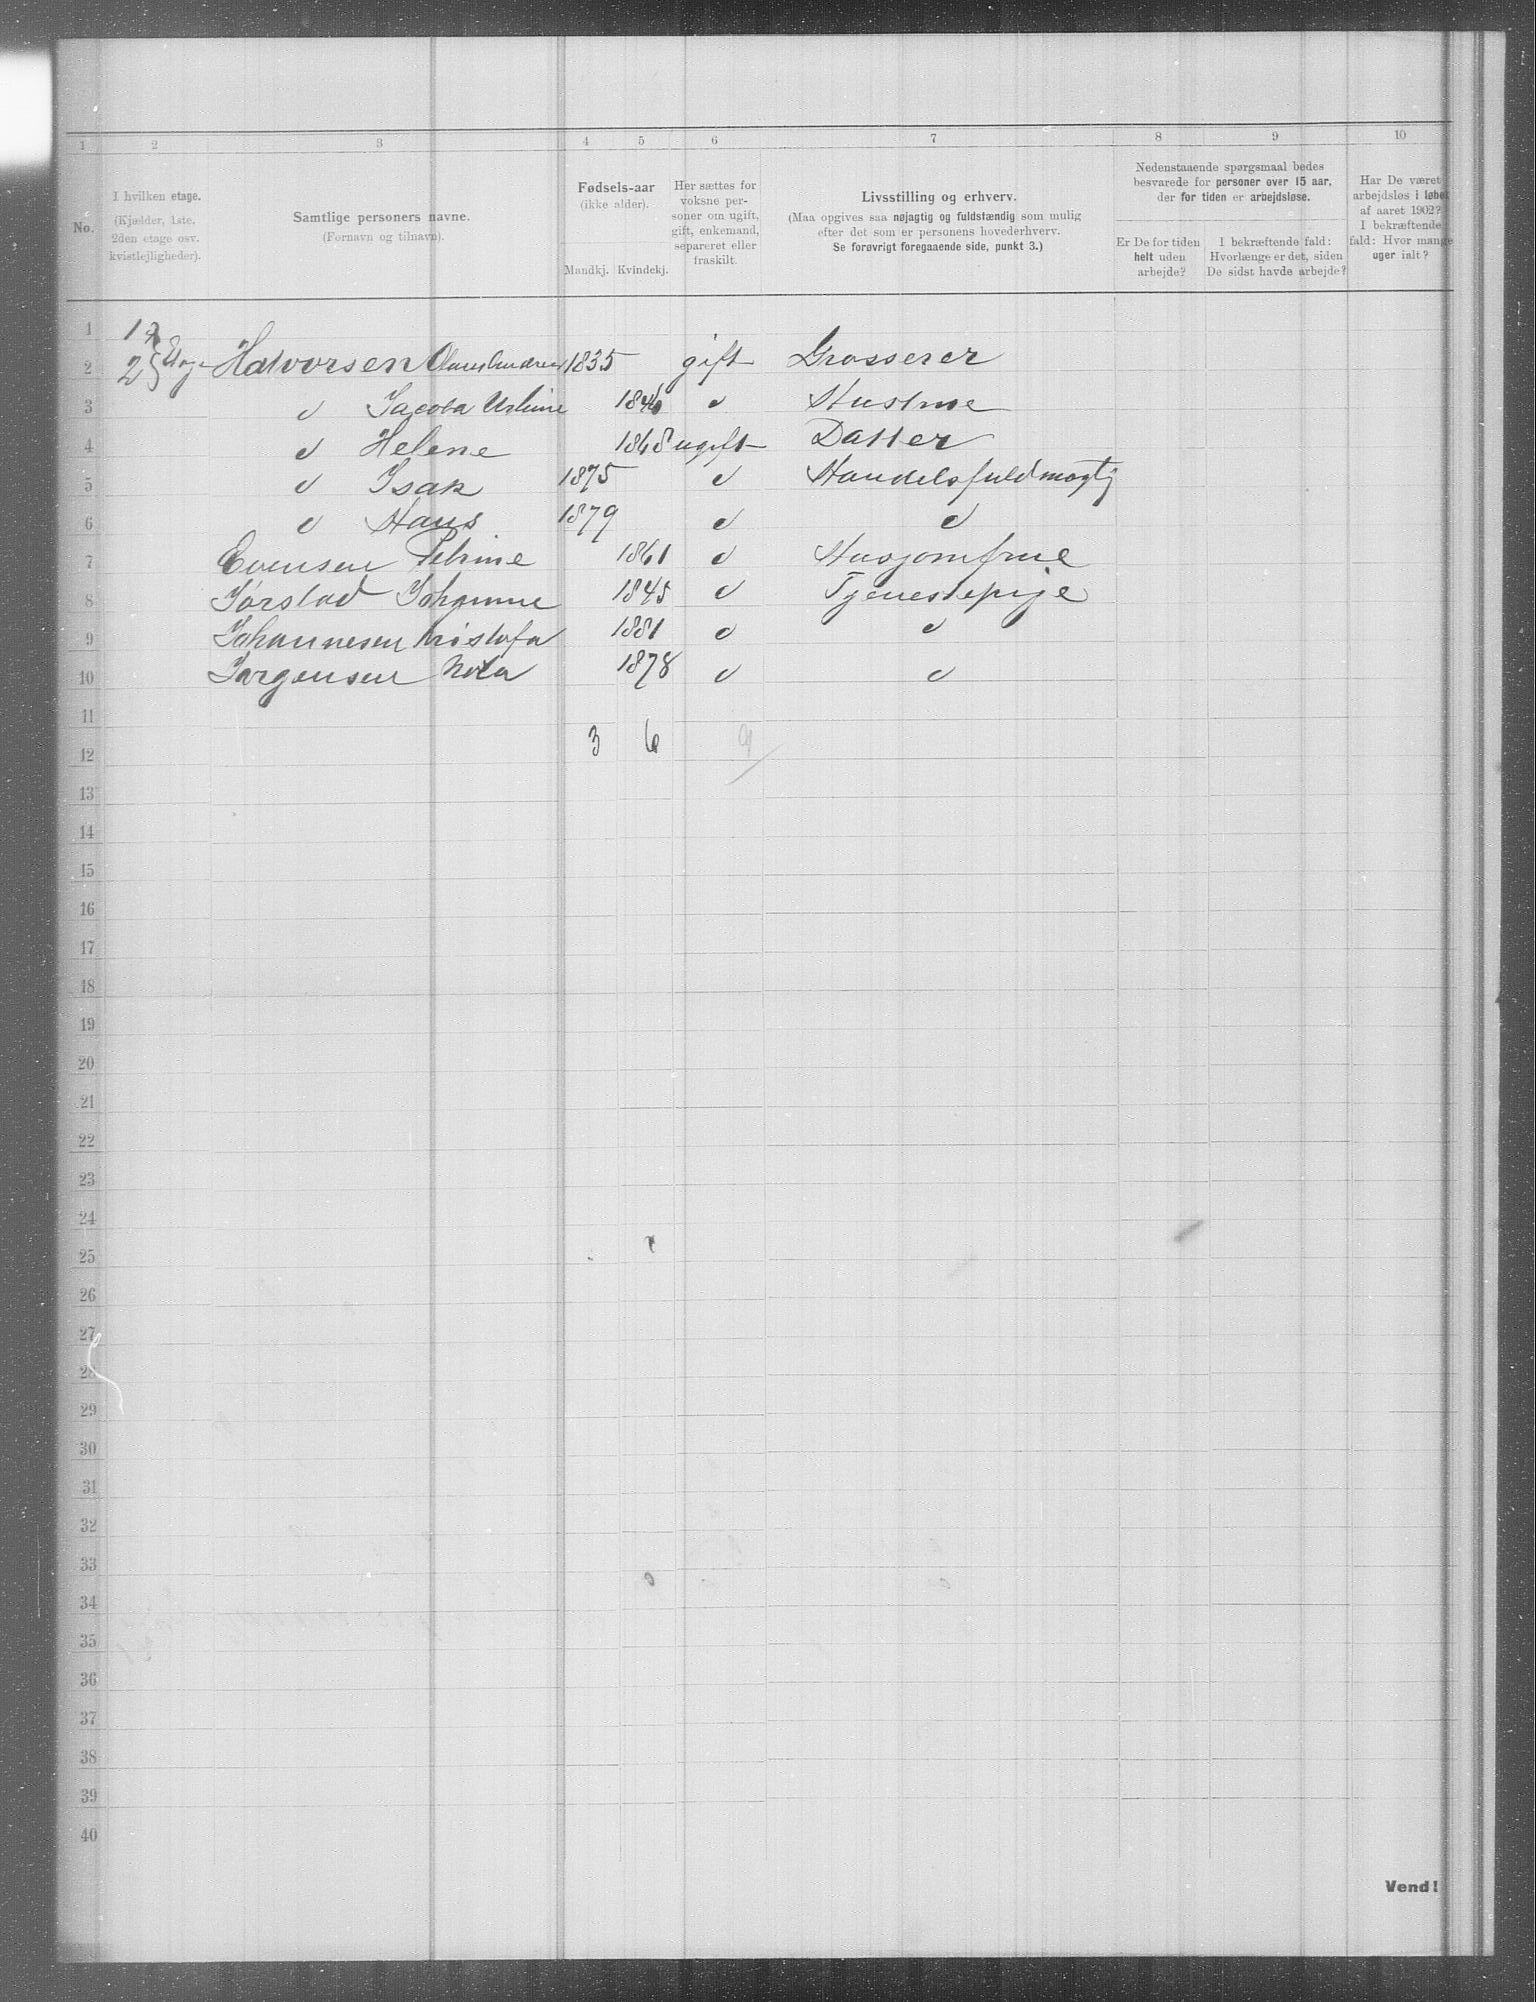 1 2 3 4 5 6 7 8 9 10
No.
I hvilken etage.
(Kjælder, 1ste,
2den etage osv.
kvistlejligheder).
Samtlige personers navne.
(Fornavn og tilnavn).
Fødsels-aar
(ikke alder).
Mandkj. Kvindekj.
Her sættes for
voksne per-
soner om ugift,
gift, enkemand,
separeret eller
fraskilt.
Livsstilling og erhverv.
(Maa opgives saa nøjagtig og fuldstændig som mulig
efter det som er personens hovederhverv.
Se forøvrigt foregaaende side, punkt 3.)
Nedenstaaende spørgsmaal bedes
besvarede for personer over 15 aar,
der for tiden er arbejdsløse.
Er De for tiden
helt uden
arbejde?
I bekræftende fald:
Hvorlænge er det, siden
De sidst havde arbejde?
Har De været
arbejdsløs i løbet
af aaret 1902?
I bekræftende
fald: Hvor mange
uger ialt?
1 1
2 2 Halvorsen 1835 gift Grosserer
3 " Jacoba 1846 " Hustrue
4 " Helene 1868 ugift Datter
5 " Isak 1875 " Handelsfuldmægtig
6 " Hans 1879 " "
7 Evensen Petrine 1861 " Husjomfrue
8 Jørstad Johanne 1845 " Tjenestepige
9 Johannesen Kristofa 1881 " "
10 Jørgensen 1878 " "
11
12 3 6 9
13
14
15
16
17
18
19
20
21
22
23
24
25
26
27
28
29
30
31
32
33
34
35
36
37
38
39
40
Vend!